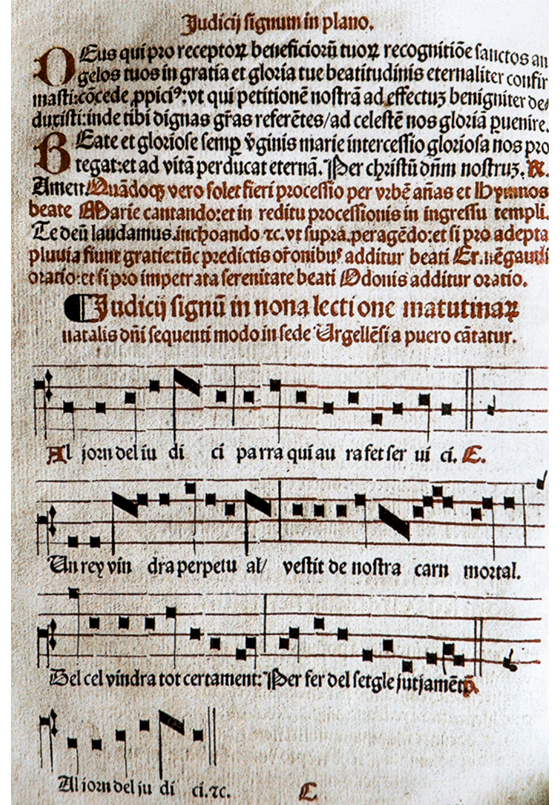 Judicij signum in plano.
Deus qui pro receptoꝝ beneficioꝝ tuoꝝ recognitiõe sanctos an
gelos tuos in gratia et gloria tue beatitudinis eternaliter confir
masti: cõcede ꝓpiciꝰ: vt qui petitionẽ nostrã ad effectuʒ benigniter de/
duxisti: inde tibi dignas gr̃as referẽtes/ad celestẽ nos gloriã ꝑuenire.
Beate et gloriose semꝑ ṽginis marie intercessio gloriosa nos pro
tegat: et ad vitã perducat eternã. Per christũ dñm nostruʒ. ℟.
Amen. Quãdoqꝫ vero solet fieri processio per vrbẽ añas et Hymnos
beate Marie cantando: et in reditu processionis in ingressu templi.
Te deũ laudamus. inchoando ⁊c. vt supra. peragẽdo: et si pro adepta
pluuia fiunt gratie: tũc predictis or̃onibꝰ additur beati
oratio: et si pro impetrata serenitate beati Odonis additur oratio.
Judicij signũ in nona lectione matutinaꝝ
natalis dñi sequenti modo in sede Urgellẽsi a puero cãtatur.
Al jorn del iu di ci parra qui au ra fet ser ui ci. C.
Un rey vin dra perpetu al/ vestit de nostra carn mortal.
Del cel vindra tot certament: Per fer del setgle jutjamẽt
Al jorn del ju di ci. ⁊c. C